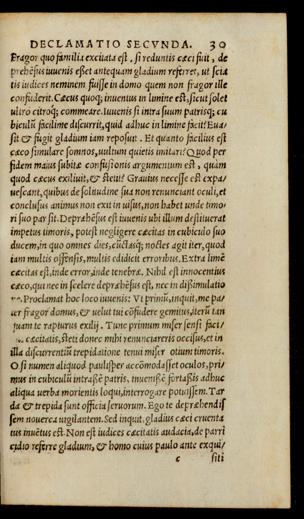 DECLAMATIO SECVNDA. 30
Fragor quo familia excitata est, si reduntis cæci fuit, de
prehēsus iuuenis esset antequam gladium referret, ut scia
tis iudices neminem fuisse in domo quem non fragor ille
confuderit. Cæcus quoq; inuentus in limine est, sicut solet
ultro citroq; commeare. Iuuenis si intrasset suum patrisq; cu
biculū facilime discurrit, quid adhuc in limine facit? Eua
sit & fugit gladium iam reposuit. Et quanto facilius est
cæco simulare somnos, uultum quietis imitari? Quod per
fidem maius subitæ confusionis argumentum est, quàm
quod cæcus exiliuit, & stetit? Grauius necesse est expa-
uescant, quibus de solitudine sua non renunciant oculi, et
conclusus animus non exit in uisus, non habet unde timo-
ri suo par sit. Deprahēsus est iuuenis ubi illum destituerat
impetus timoris, potest negligere cæcitas in cubiculo suo
ducem, in quo omnes dies, cūctasq; noctes agit iter, quod
iam multis offensis, multis edidicit erroribus. Extra limē
cæcitas est, inde error, inde tenebræ. Nihil est innocentius
cæco, qui nec in scelere deprahēsus est, nec in dissimulatio
Proclamat hoc loco iuuenis: Vt primū, inquit, me pa/
ter fragor domus, & uelut tui cōfudere gemitus, iterū tan
quam te rapturus exilij. Tunc primum miser sensi faci/
cæcitatis, steti donec mihi renunciareris occisus, et in
illa discurrentiū trepidatione tenui miser otium timoris.
O si numen aliquod paulisper accōmodasset oculos, pri/
mus in cubiculū intrassē patris, inuenissē fortassis adhuc
aliqua uerba morientis loqui, interrogare potuissem. Tar
da & trepida sunt officia seruorum. Ego te depræhendis
sem nouerca uigilantem. Sed inquit, gladius cæci cruenta
tus inuētus est. Non est iudices cæcitatis audacia, de parri
cidio referre gladium, & homo cuius paulo ante exqui/
c siti